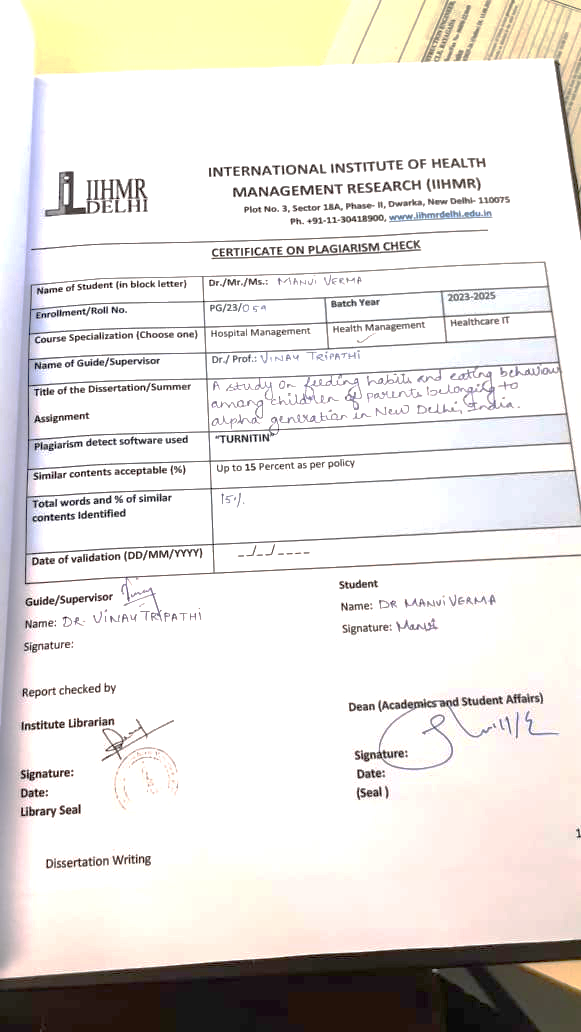 IIHMR
DELHI
INTERNATIONAL INSTITUTE OF HEALTH
MANAGEMENT RESEARCH (IIHMR)
Plot No. 3, Sector 18A, Phase- II, Dwarka, New Delhi- 110075
Ph. +91-11-30418900, www.iihmrdelhi.edu.in
CERTIFICATE ON PLAGIARISM CHECK
Name of Student (in block letter) Dr./Mr./Ms.: MANVI VERMA
Enrollment/Roll No. PG/23/059 Batch Year 2023-2025
Course Specialization (Choose one) Hospital Management Health Management Healthcare IT
Name of Guide/Supervisor Dr./ Prof.: VINAY TRIPATHI
Title of the Dissertation/Summer Assignment
A study on feeding habits and eating behaviour
among children of parents belonging to
alpha generation in New Delhi, India.
Plagiarism detect software used "TURNITIN"
Similar contents acceptable (%) Up to 15 Percent as per policy
Total words and % of similar contents Identified 15%
Date of validation (DD/MM/YYYY) __/__/____
Guide/Supervisor
Name: DR. VINAY TRIPATHI
Signature:
Student
Name: DR MANVI VERMA
Signature: Manvi
Report checked by
Institute Librarian
Signature:
Date:
Library Seal
Dean (Academics and Student Affairs)
Signature:
Date:
(Seal )
1
Dissertation Writing